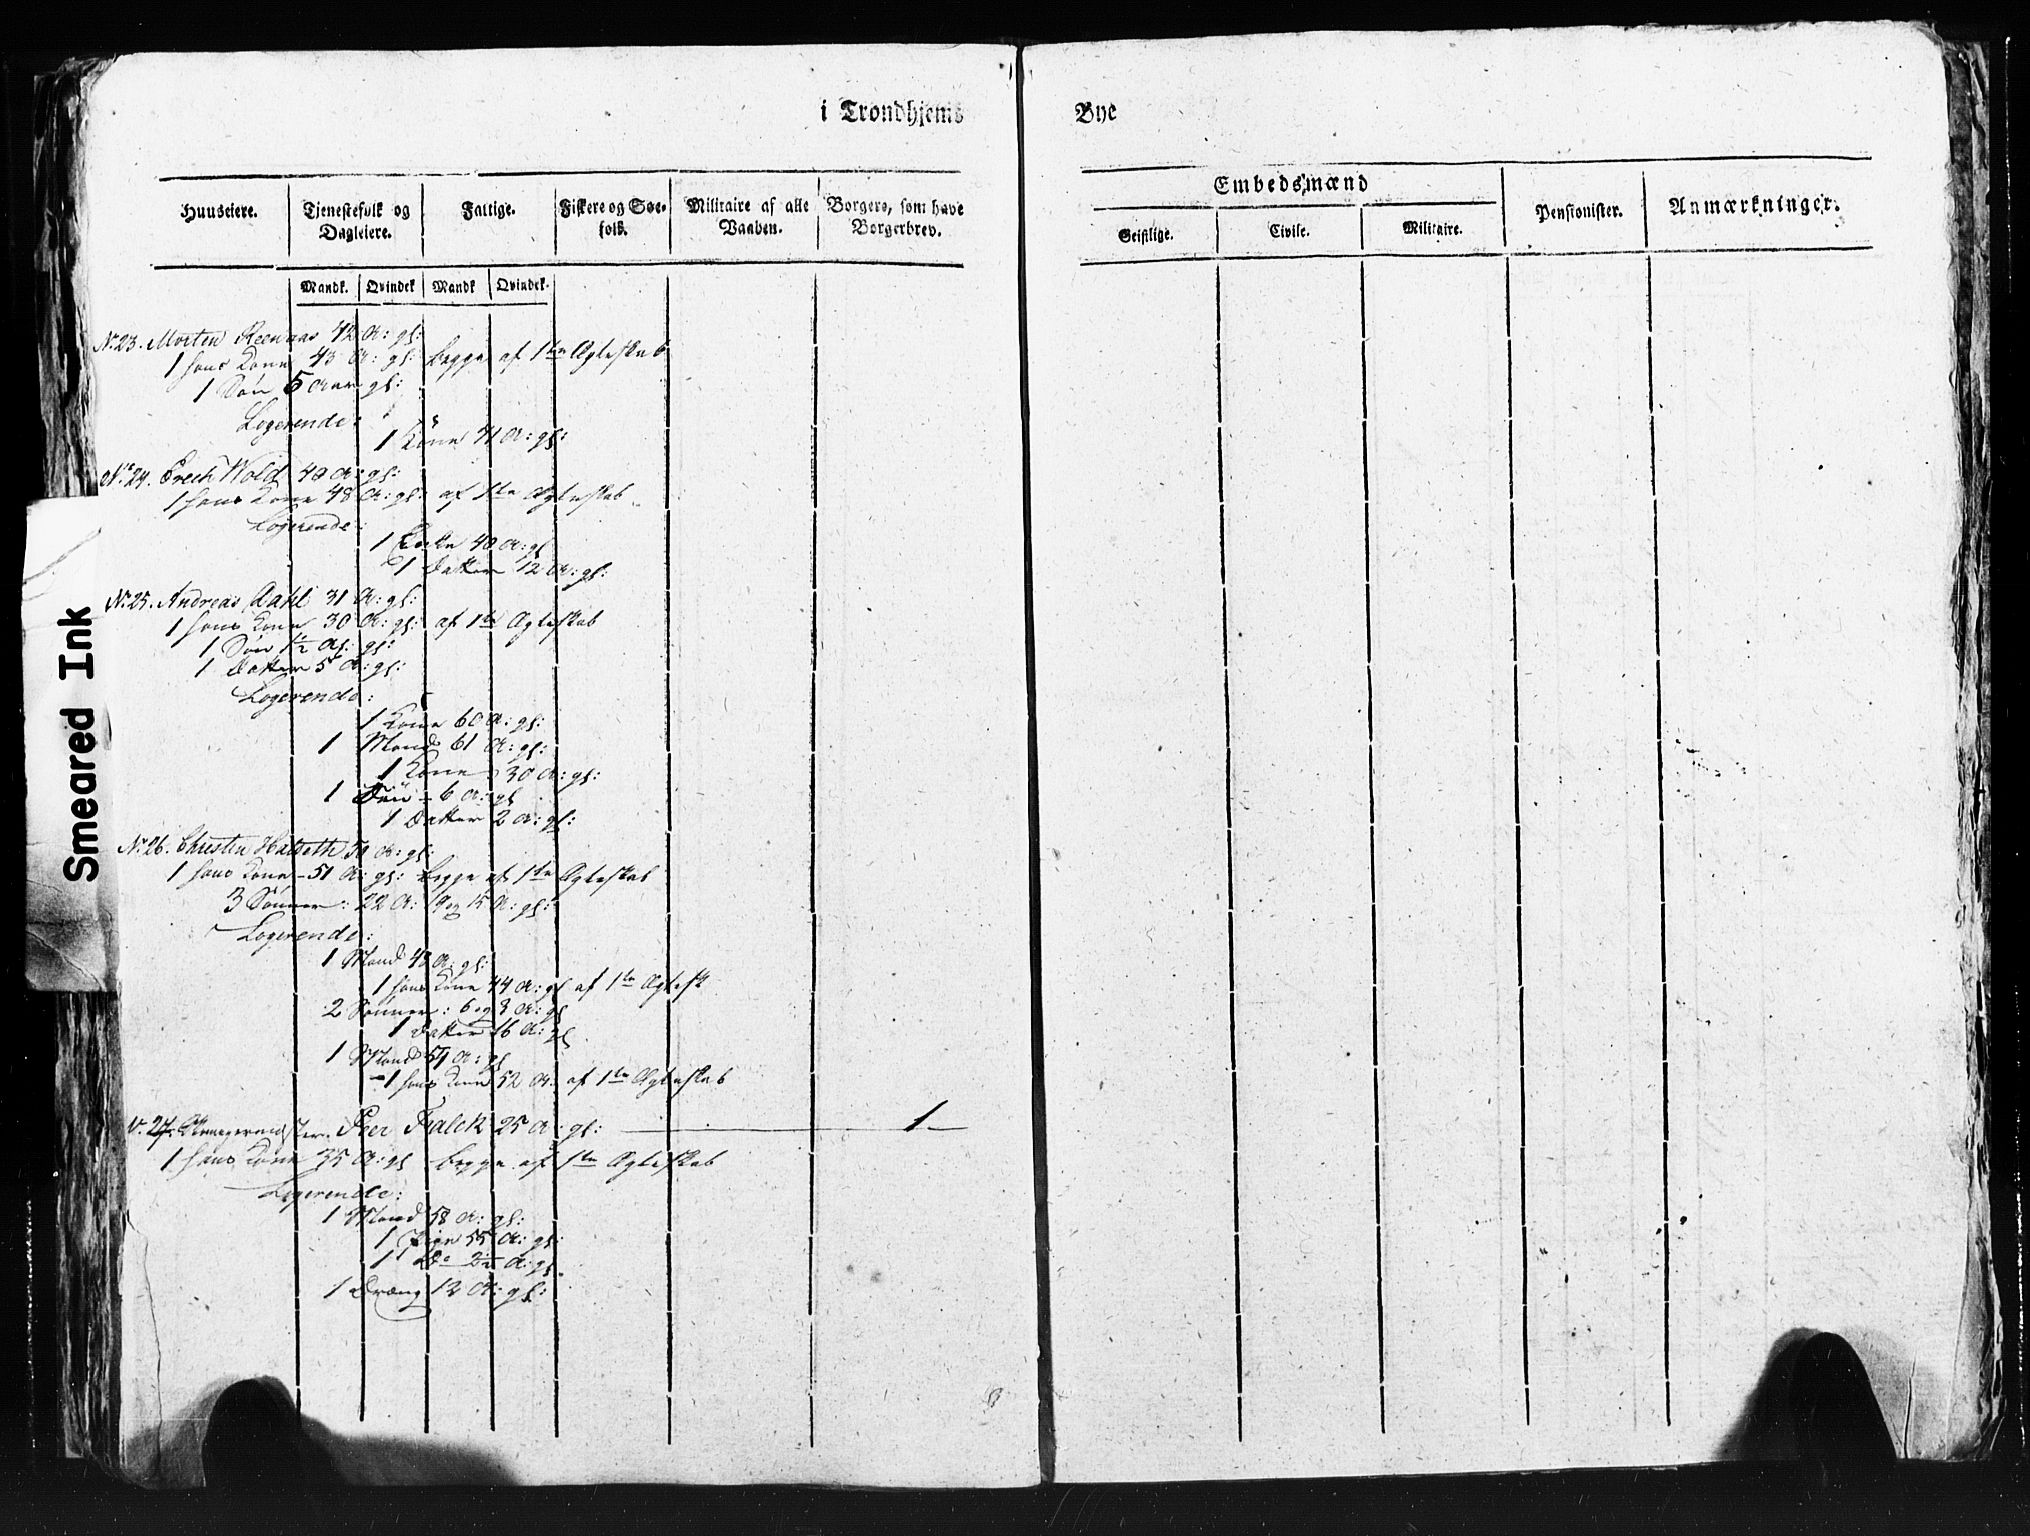 i Trondhjems Bye
Huuseiere. Tjenestefolk og Dagleiere. Fattige. Fiskere og Søefolk. Militaire af alle Vaaben. Borgere, som have Borgerbrev.
Embedsmænd
Geistlige. Civile. Militaire. Pensionister. Anmærkninger.
Mandk. Qvindek Mandk Qvindek.
No 23. Morten Reenaas 42 A: gl:
1 hans Kone 43 A: gl: begge af 1ste Ægteskab
1 Søn 5 Aar gl:
Logerende:
1 Kone 71 A: gl:
No 24. Erech Wold 40 A: gl:
1 hans Kone 48 A: gl: af 1ste Ægteskab
Logerende:
1 Enke 40 A: gl
1 Datter 12 A: gl:
No 25. Andreas Dahl 31 A: gl:
1 hans Kone 30 A: gl: af 1ste Ægteskab
1 Søn 1/2 A: gl:
1 Datter 5 A: gl:
Logerende:
1 Kone 60 A: gl:
1 Mand 61 A: gl:
1 Kone 30 A: gl:
1 Søn - 6 A: gl
1 Datter 2 A: gl:
No 26. Christen Halseth 50 A: gl:
1 hans Kone - 51 A: gl: begge af 1ste Ægteskab
3 Sønner: 22 A: 19 og 15 A: gl:
Logerende:
1 Mand 43 A: gl:
1 hans Kone 44 A: gl af 1ste Ægtesk
2 Sønner: 6 og 3 A: gl
1 Datter 16 A: gl
1 Mand 54 A: gl
1 hans Kone 52 A: af 1ste Ægteskab
No 27. Peer Falck 25 A: gl: 1
1 hans Kone 35 A: gl begge af 1ste Ægteskab
Logerende:
1 Mand 58 A: gl:
1 Pige 55 A: gl:
1 Do A: gl.
1 Dræng 12 A: gl:
Smeared Ink